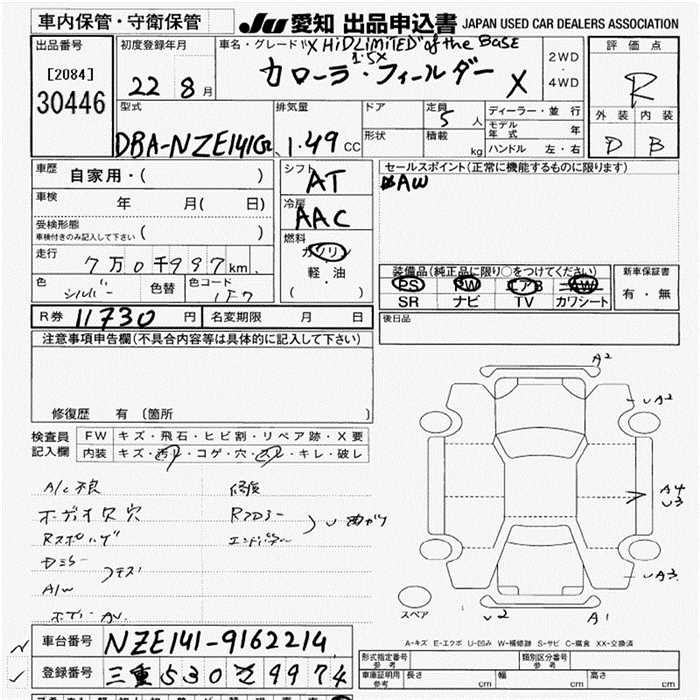 車内保管・守衛保管
JU 愛知 出品申込書 JAPAN USED CAR DEALERS ASSOCIATION
出品番号
[2084]
30446
初度登録年月
22 8月
車名・グレード "X HiD LiMiTED" of the BASE
1.5X
カローラ・フィールダー X
2WD
・
4WD
評価点
R
外装 内装
D B
型式
DBA-NZE141G
排気量
1.49 CC
ドア
形状
定員
5人
積載
kg
ディーラー・並行
モデル年式 年
ハンドル 左・右
車歴
自家用・( )
車検
年 月( 日)
受検形態
車検付きのみ記入して下さい ( )
走行
7万0千997km
色
シルバー
色替
色コード
1F7
シフト
AT
冷房
AAC
燃料
ガソリン
軽・油
( )
セールスポイント(正常に機能するものに限ります)
AW
装備品(純正品に限り○をつけてください)
PS PW エアB AW
SR ナビ TV カワシート
新車保証書
有・無
R券 11730 円
名変期限 月 日
後日品
注意事項申告欄(不具合内容等は具体的に記入して下さい)
修復歴 有 (箇所 )
検査員
記入欄
FW キズ・飛石・ヒビ割・リペア跡・X要
内装 キズ・汚レ・コゲ・穴・スレ・キレ・破レ
A/C 不良
修復
A/W
A2
A2
A4
U3
A3
スペア
U2
A1
A-キズ E-エクボ U-凹み W-補修跡 S-サビ C-腐食 XX-交換済
車台番号 NZE141-9162214
登録番号 三重 530 9974
形式指定番号
参考
類別区分番号
参考
車庫証明用
参考
長さ cm
幅 cm
高さ cm